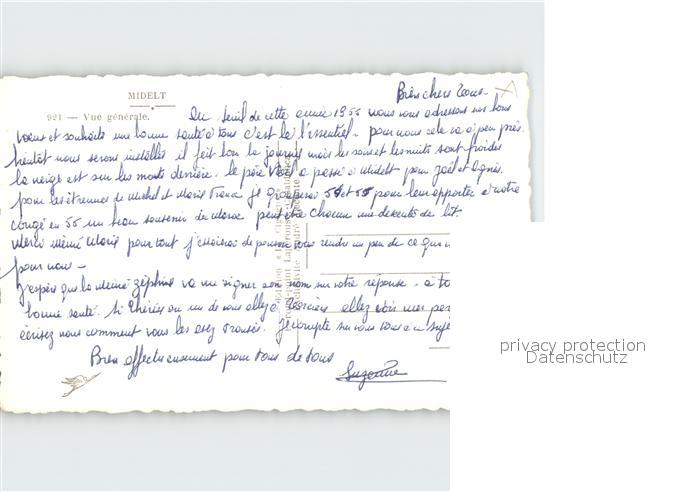 MIDELT
921 - Vue générale.
Bien chers Tous -
Au seuil de cette année 1955 nous vous adressons nos bons
voeux et souhaits une bonne santé à tous c'est là l'essentiel - pour nous cela va à peu près.
bientôt nous serons installés il fait bon la journée mais les soirs et les nuits sont froides
la neige est sur les monts derrière - le père Noël a passé à Midelt pour Joël et Agnès.
pour les étrennes de Michel et Marie France je grouperai 54 et 55 pour leur apporter à notre
congé en 55 un beau souvenir du Maroc peut être chacun une descente de lit.
Merci mémé Marie pour tout j'essaierai de pouvoir vous rendre un peu de ce que
pour nous -
J'espère que la mémé Zéphirine va me signer son nom sur votre réponse - à
bonne santé. Si Thérèse ou un de vous allez à allez voir mes
écrivez nous comment vous les avez trouvés. Je compte sur vous tous à ce
Bien affectueusement pour tous de tous
Suzanne
privacy protection
Datenschutz